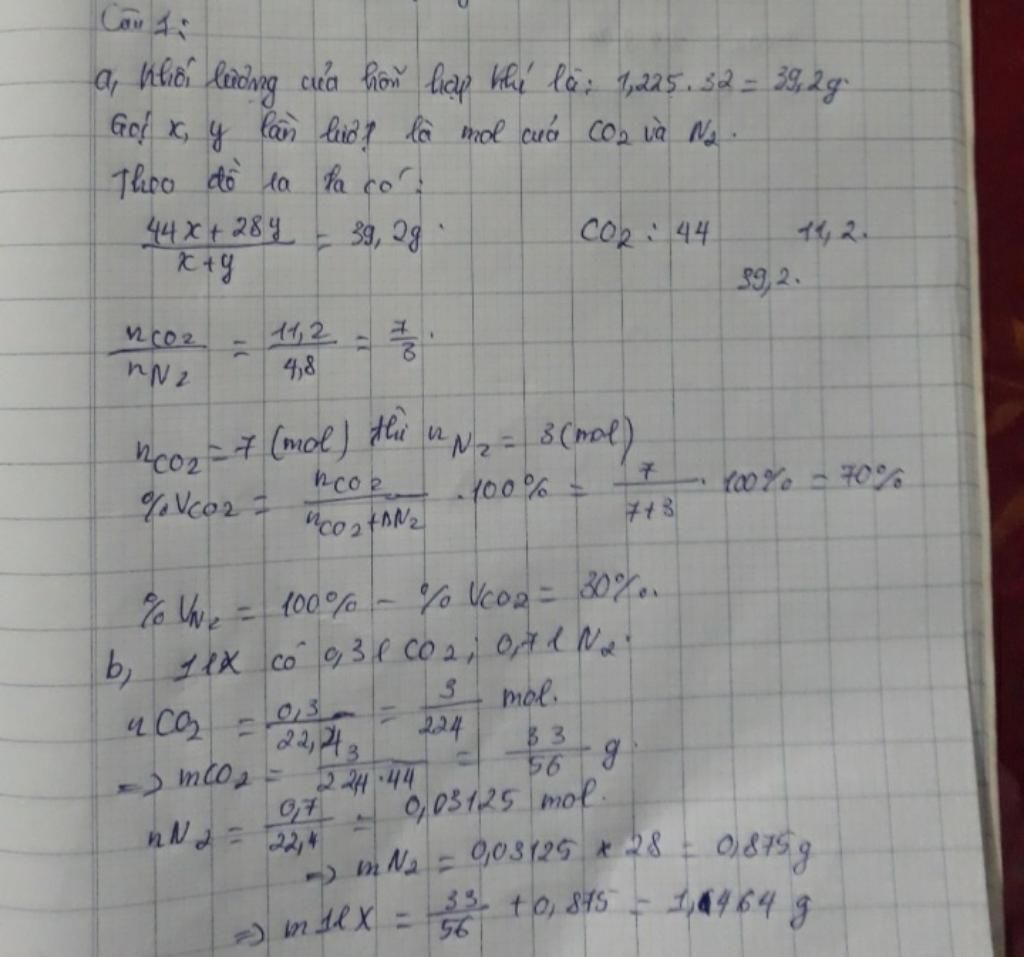 Câu 1:
a, Khối lượng của hỗn hợp khí là: 1,225 . 32 = 39,2g
Gọi x, y lần lượt là mol của CO2 và N2.
Theo đề ra ta có:
44x + 28y / x + y = 39,2g. CO2 : 44 11,2.
39,2.
nCO2 / nN2 = 11,2 / 4,8 = 7/3.
nCO2 = 7 (mol) thì nN2 = 3 (mol)
%VCO2 = nCO2 / nCO2 + nN2 . 100% = 7 / 7+3 . 100% = 70%
%VN2 = 100% - %VCO2 = 30%.
b, 1lX có 0,3l CO2; 0,7l N2.
nCO2 = 0,3 / 22,4 = 3 / 224 mol.
=> mCO2 = 3 / 224.44 = 33 / 56 g.
nN2 = 0,7 / 22,4 = 0,03125 mol.
=> mN2 = 0,03125 × 28 = 0,875g
=> m1lX = 33 / 56 + 0,875 = 1,1464 g